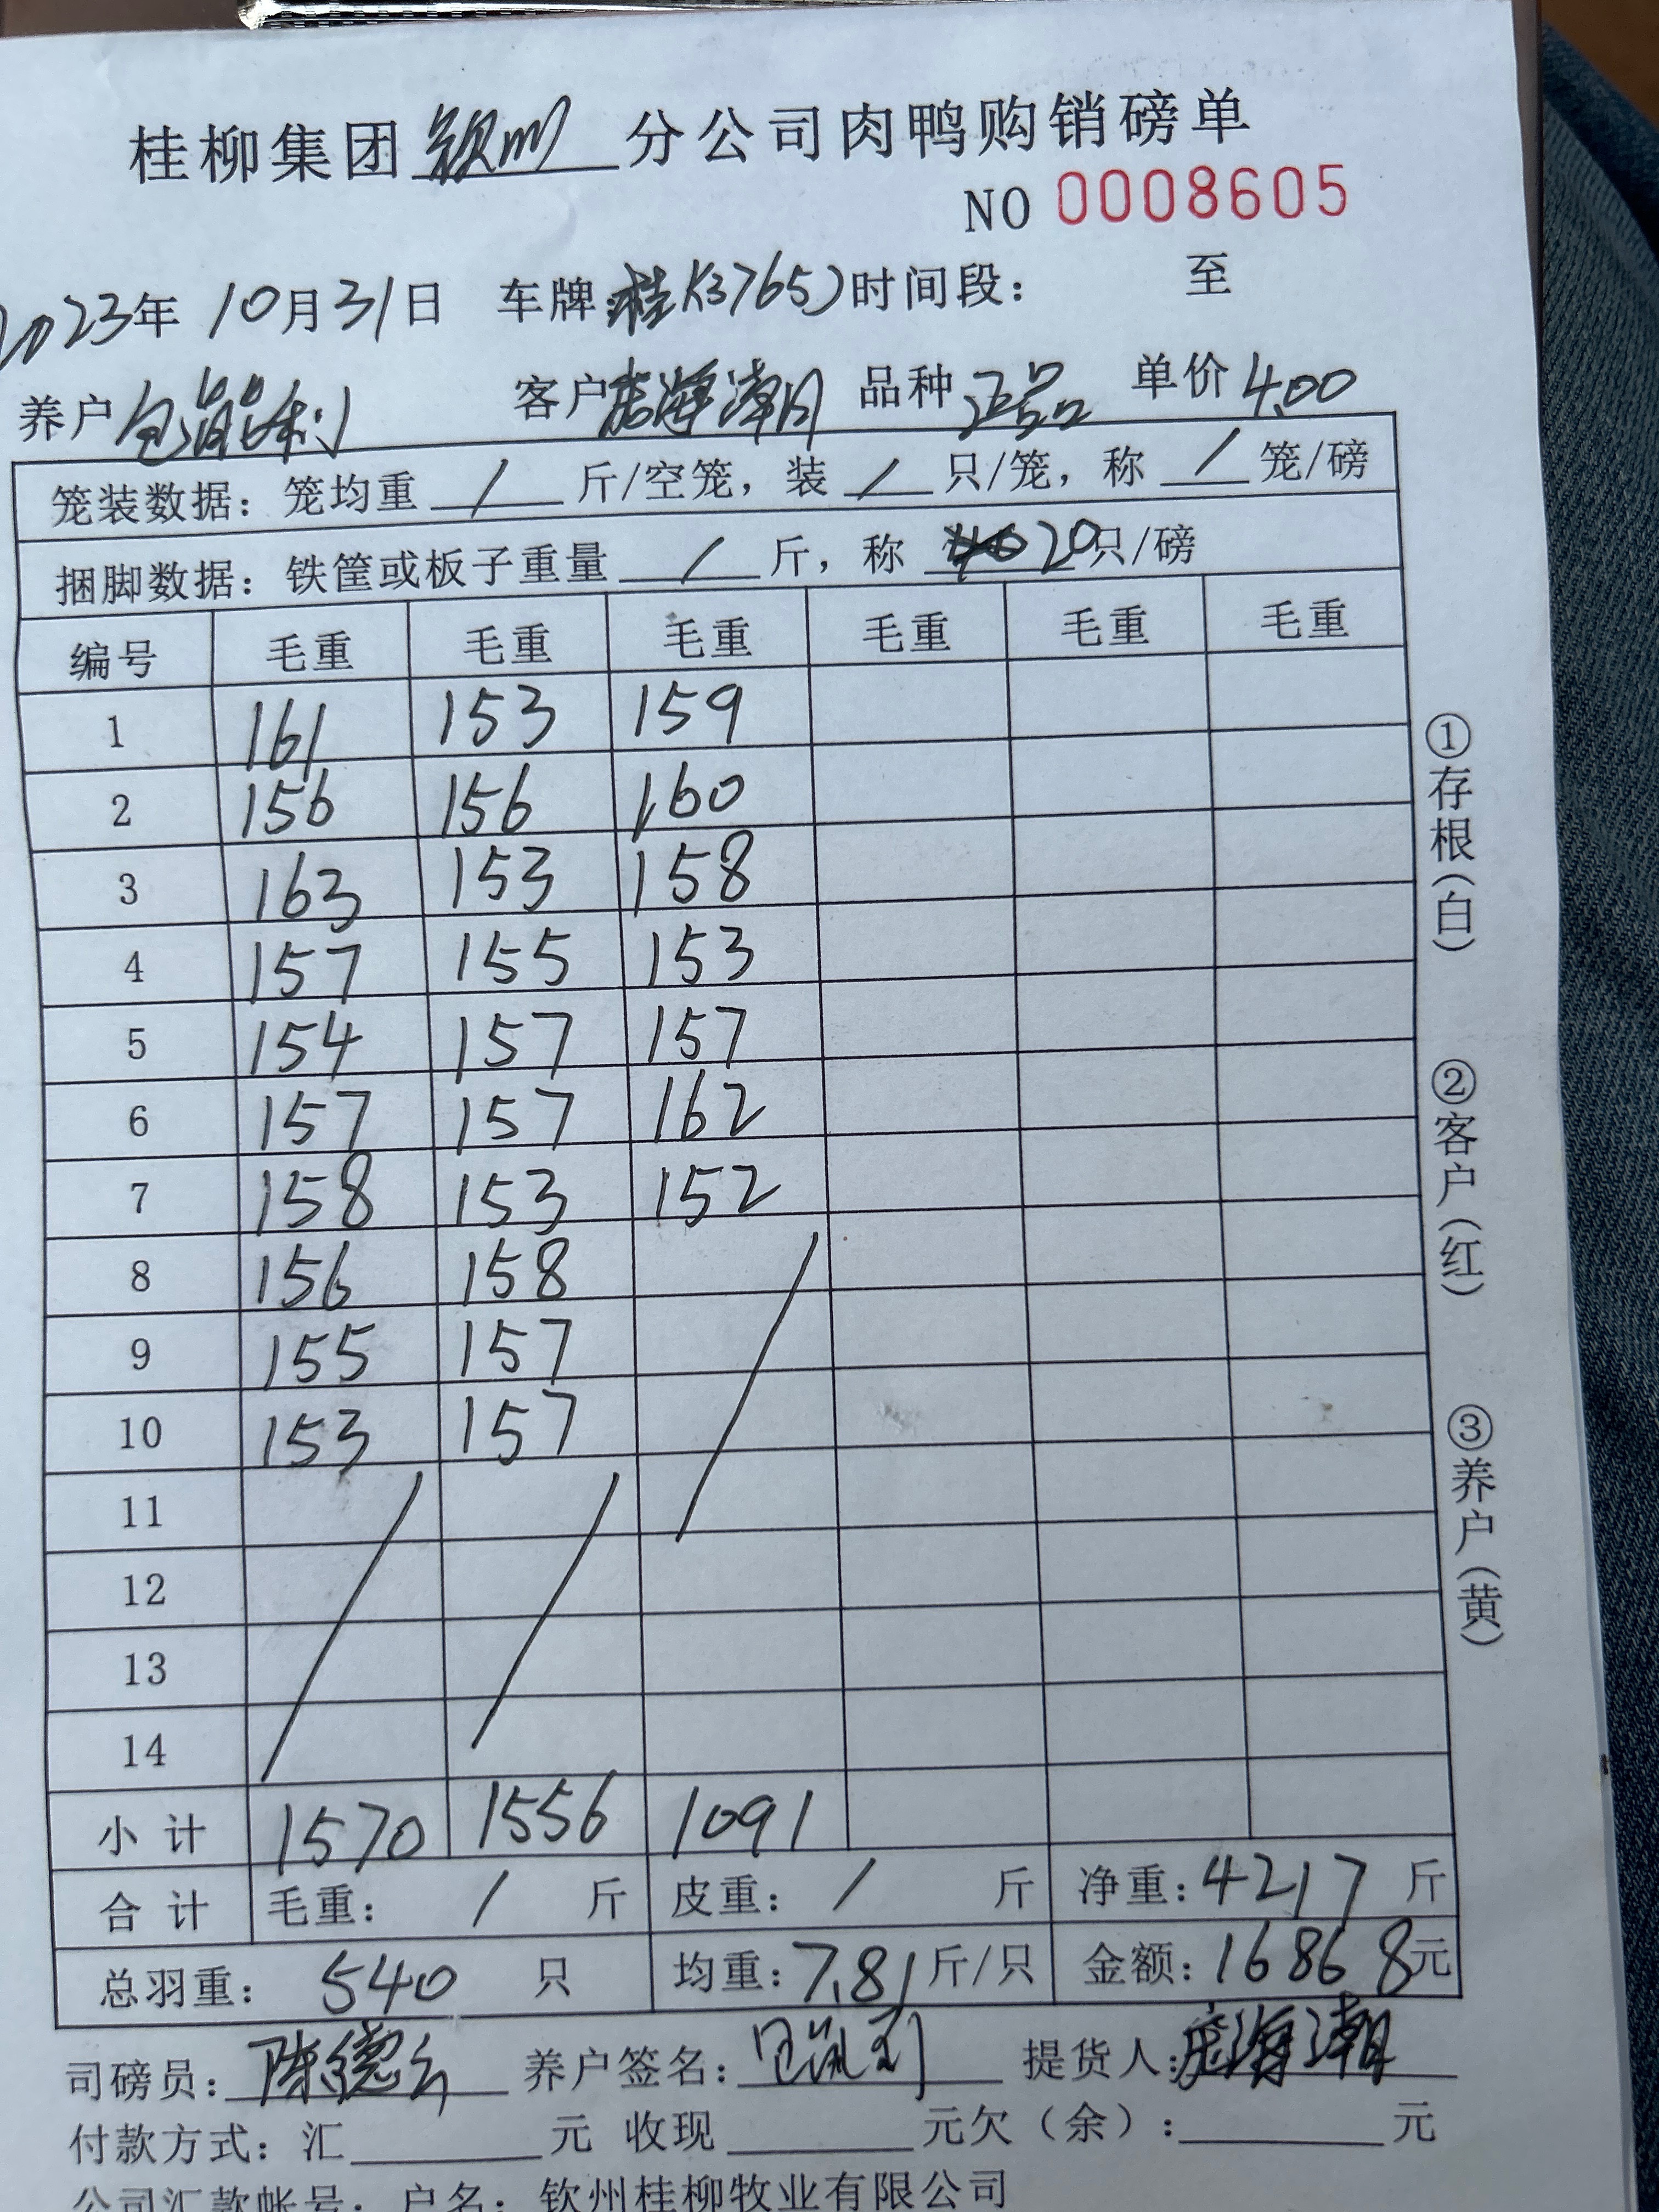 桂柳集团钦州分公司肉鸭购销磅单
NO 0008605
2023年 10月31日 车牌桂K(3765)时间段： 至
养户 客户 海潮 品种 正品 单价 4.00
笼装数据：笼均重 / 斤/空笼，装 / 只/笼，称 / 笼/磅
捆脚数据：铁筐或板子重量 / 斤，称 20只/磅
编号 毛重 毛重 毛重 毛重 毛重 毛重
1 161 153 159
2 156 156 160
3 163 153 158
4 157 155 153
5 154 157 157
6 157 157 162
7 158 153 152
8 156 158
9 155 157
10 153 157
11
12
13
14
小计 1570 1556 1091
合计 毛重： / 斤 皮重： / 斤 净重：4217 斤
总羽重： 540 只 均重：7.81斤/只 金额：16868元
司磅员：陈德云 养户签名： 提货人： 海潮
付款方式：汇 元 收现 元欠（余）： 元
公司汇款帐号：户名：钦州桂柳牧业有限公司
①存根（白） ②客户（红） ③养户（黄）